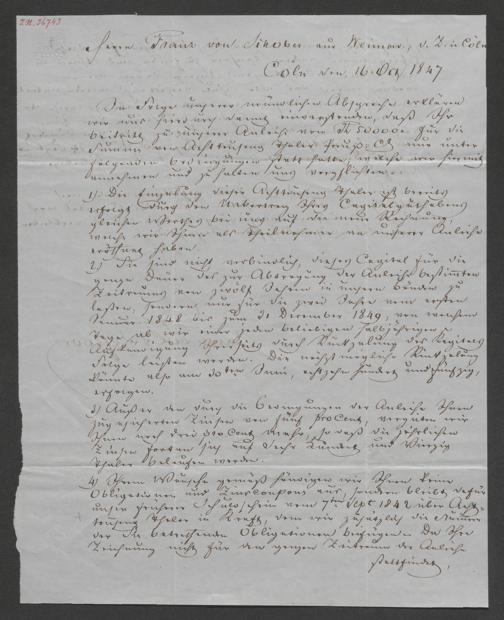 I.N. 36743
Herrn Franz von Schober aus Weimar, d. Z. in Cöln
Cöln den 16 Oct 1847
In Folge unserer mündlichen Absprache erklären
wir uns hierdurch damit einverstanden, daß Ihr
Beitritt zu unserer Anleihe von 50000 für die
Summe von Achttausend Thaler preuß. Ct nur unter
folgenden Bedingungen statthabe, welche wir hiermit
annehmen und zu halten uns verpflichten.
1) Die Einzahlung dieser Achttausend Thaler ist bereits
erfolgt durch den Uebertrag Ihres Capitalguthabens
gleichen Werthes bei uns auf die neue Rechnung,
welche wir Ihnen als Theilnehmer an unserer Anleihe
eröffnet haben.
2) Sie sind nicht verbindlich, dieses Capital für die
ganze Dauer des zur Abtragung der Anleihe bestimmten
Zeitraums von zwölf Jahren in unsern Händen zu
laßen, sondern nur für die zwei Jahre vom ersten
Januar 1848 bis zum 31 December 1849, von welchem
Tage ab wir einer jeden beliebigen halbjährigen
Aufkündigung Ihrerseits durch Rückzahlung des Capitals
Folge leisten werden. Die nächst mögliche Rückzahlung
könnte also am 30ten Juni, achtzehn hundert und fünfzig,
erfolgen.
3) Außer den durch die Bedingungen der Anleihe Ihnen
zugesicherten Zinsen von fünf procent, vergüten wir
Ihnen noch drei procent mehr, so daß die jährlichen
Zinsen sich auf Sechs Hundert und Vierzig
Thaler belaufen werden.
4) Ihrem Wunsche gemäß händigen wir Ihnen keine
Obligationen und Zinscoupons aus, sondern bleibt dafür
unser früherer Schuldschein vom 7ten Sept 1842 über Acht
tausend Thaler in Kraft, dem wir zusätzlich die Nummern
der Sie betreffenden Obligationen beifügen. Da Ihre
Zeichnung nicht für den ganzen Zeitraum der Anleihe
stattfindet,